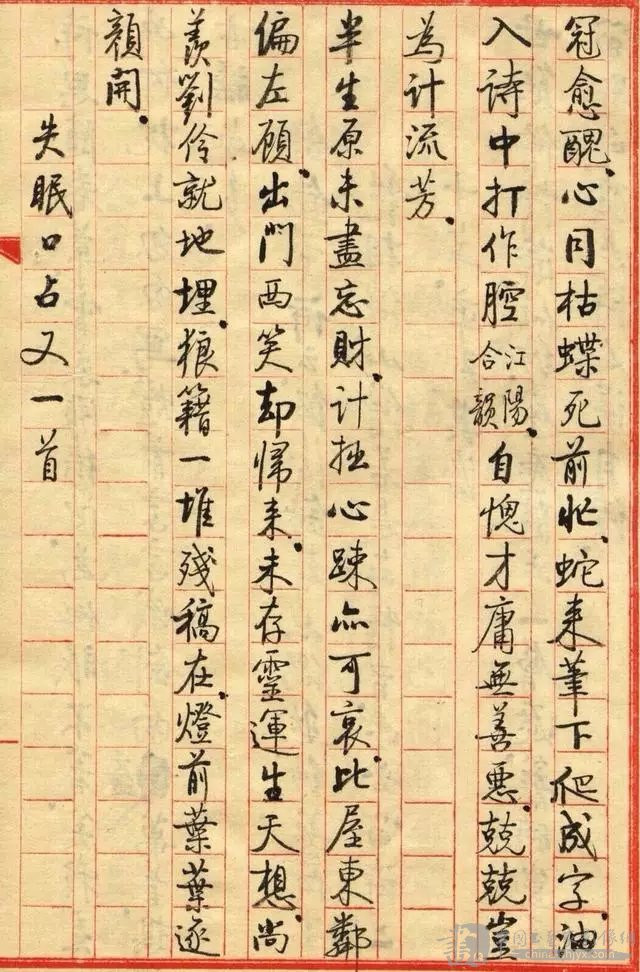 冠愈醜。心同枯蝶死前忙。蛇来筆下爬成字。油
入诗中打作腔合江陽韻。自愧才庸無善惡。兢兢豈
為计流芳。
半生原未盡忘財。计拙心疎亦可哀。比屋東鄰
偏左顾。出門西笑却帰来。未存靈運生天想。尚
羡劉伶就地埋。狼籍一堆殘稿在。燈前葉葉逐
顏開。
失眠口占又一首